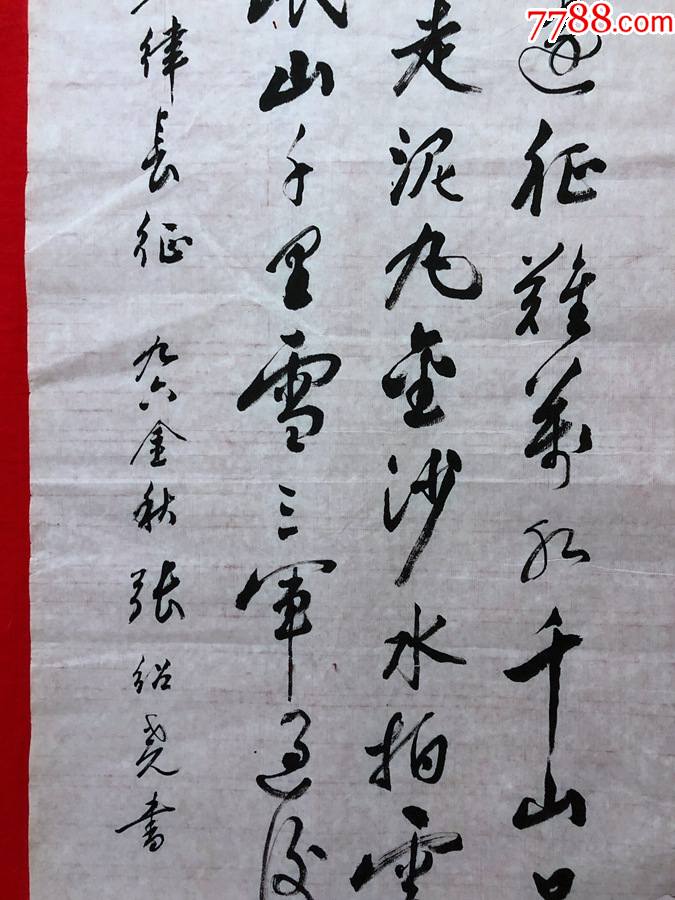 7788.com
远征难万水千山只
走泥丸金沙水拍云
岷山千里雪三军过后
律長征 九六金秋 張紹尧書